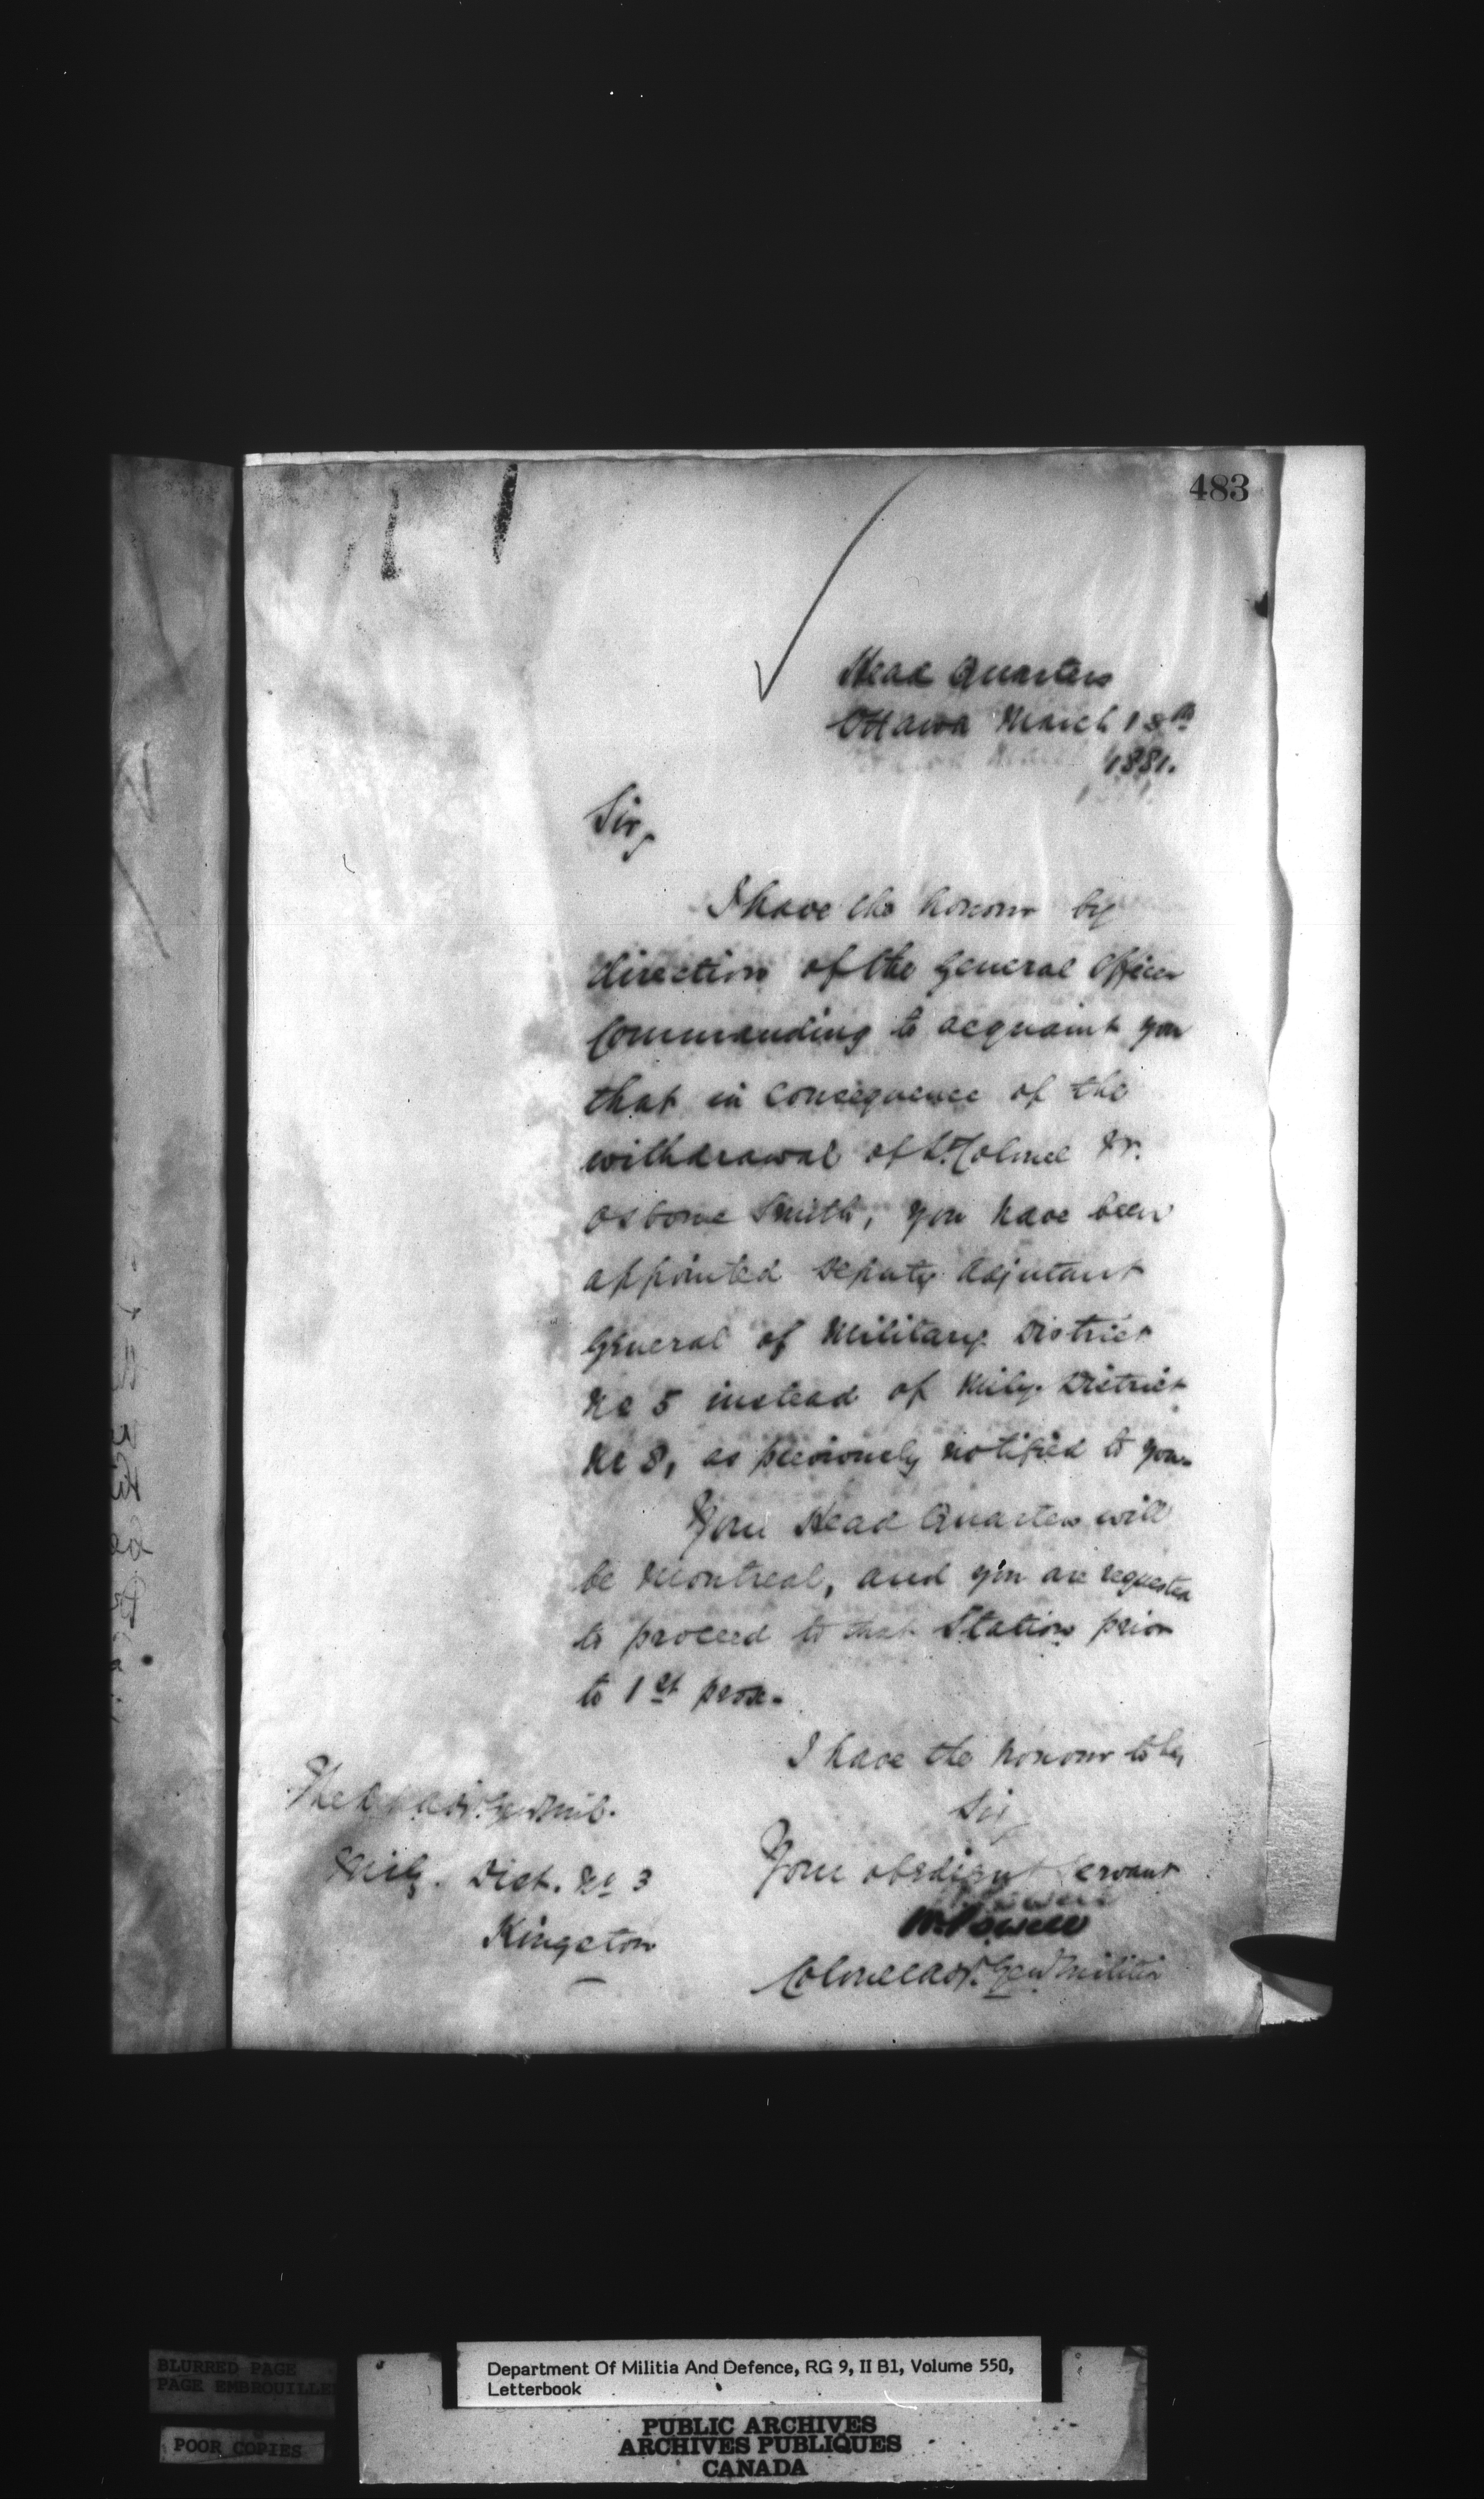 483
Head Quarters
Ottawa March 18th
1881.
Sir,
I have the honour by
direction of the General Officer
Commanding to acquaint you
that in consequence of the
withdrawal of Lt. Colonel W.
Osborne Smith, you have been
appointed Deputy Adjutant
General of Military District
No 5 instead of Mily. District
No 8, as previously notified to you.
Your Head Quarters will
be Montreal, and you are requested
to proceed to that Station prior
to 1st prox.
I have the honour to be,
Sir,
Your obedient servant
W. Powell
Colonel Adjt. Genl Militia
The Adjt. Genl Mil.
Mily. Dist. No 3
Kingston
BLURRED PAGE
PAGE EMBROUILLE
POOR COPIES
Department Of Militia And Defence, RG 9, II B1, Volume 550,
Letterbook
PUBLIC ARCHIVES
ARCHIVES PUBLIQUES
CANADA